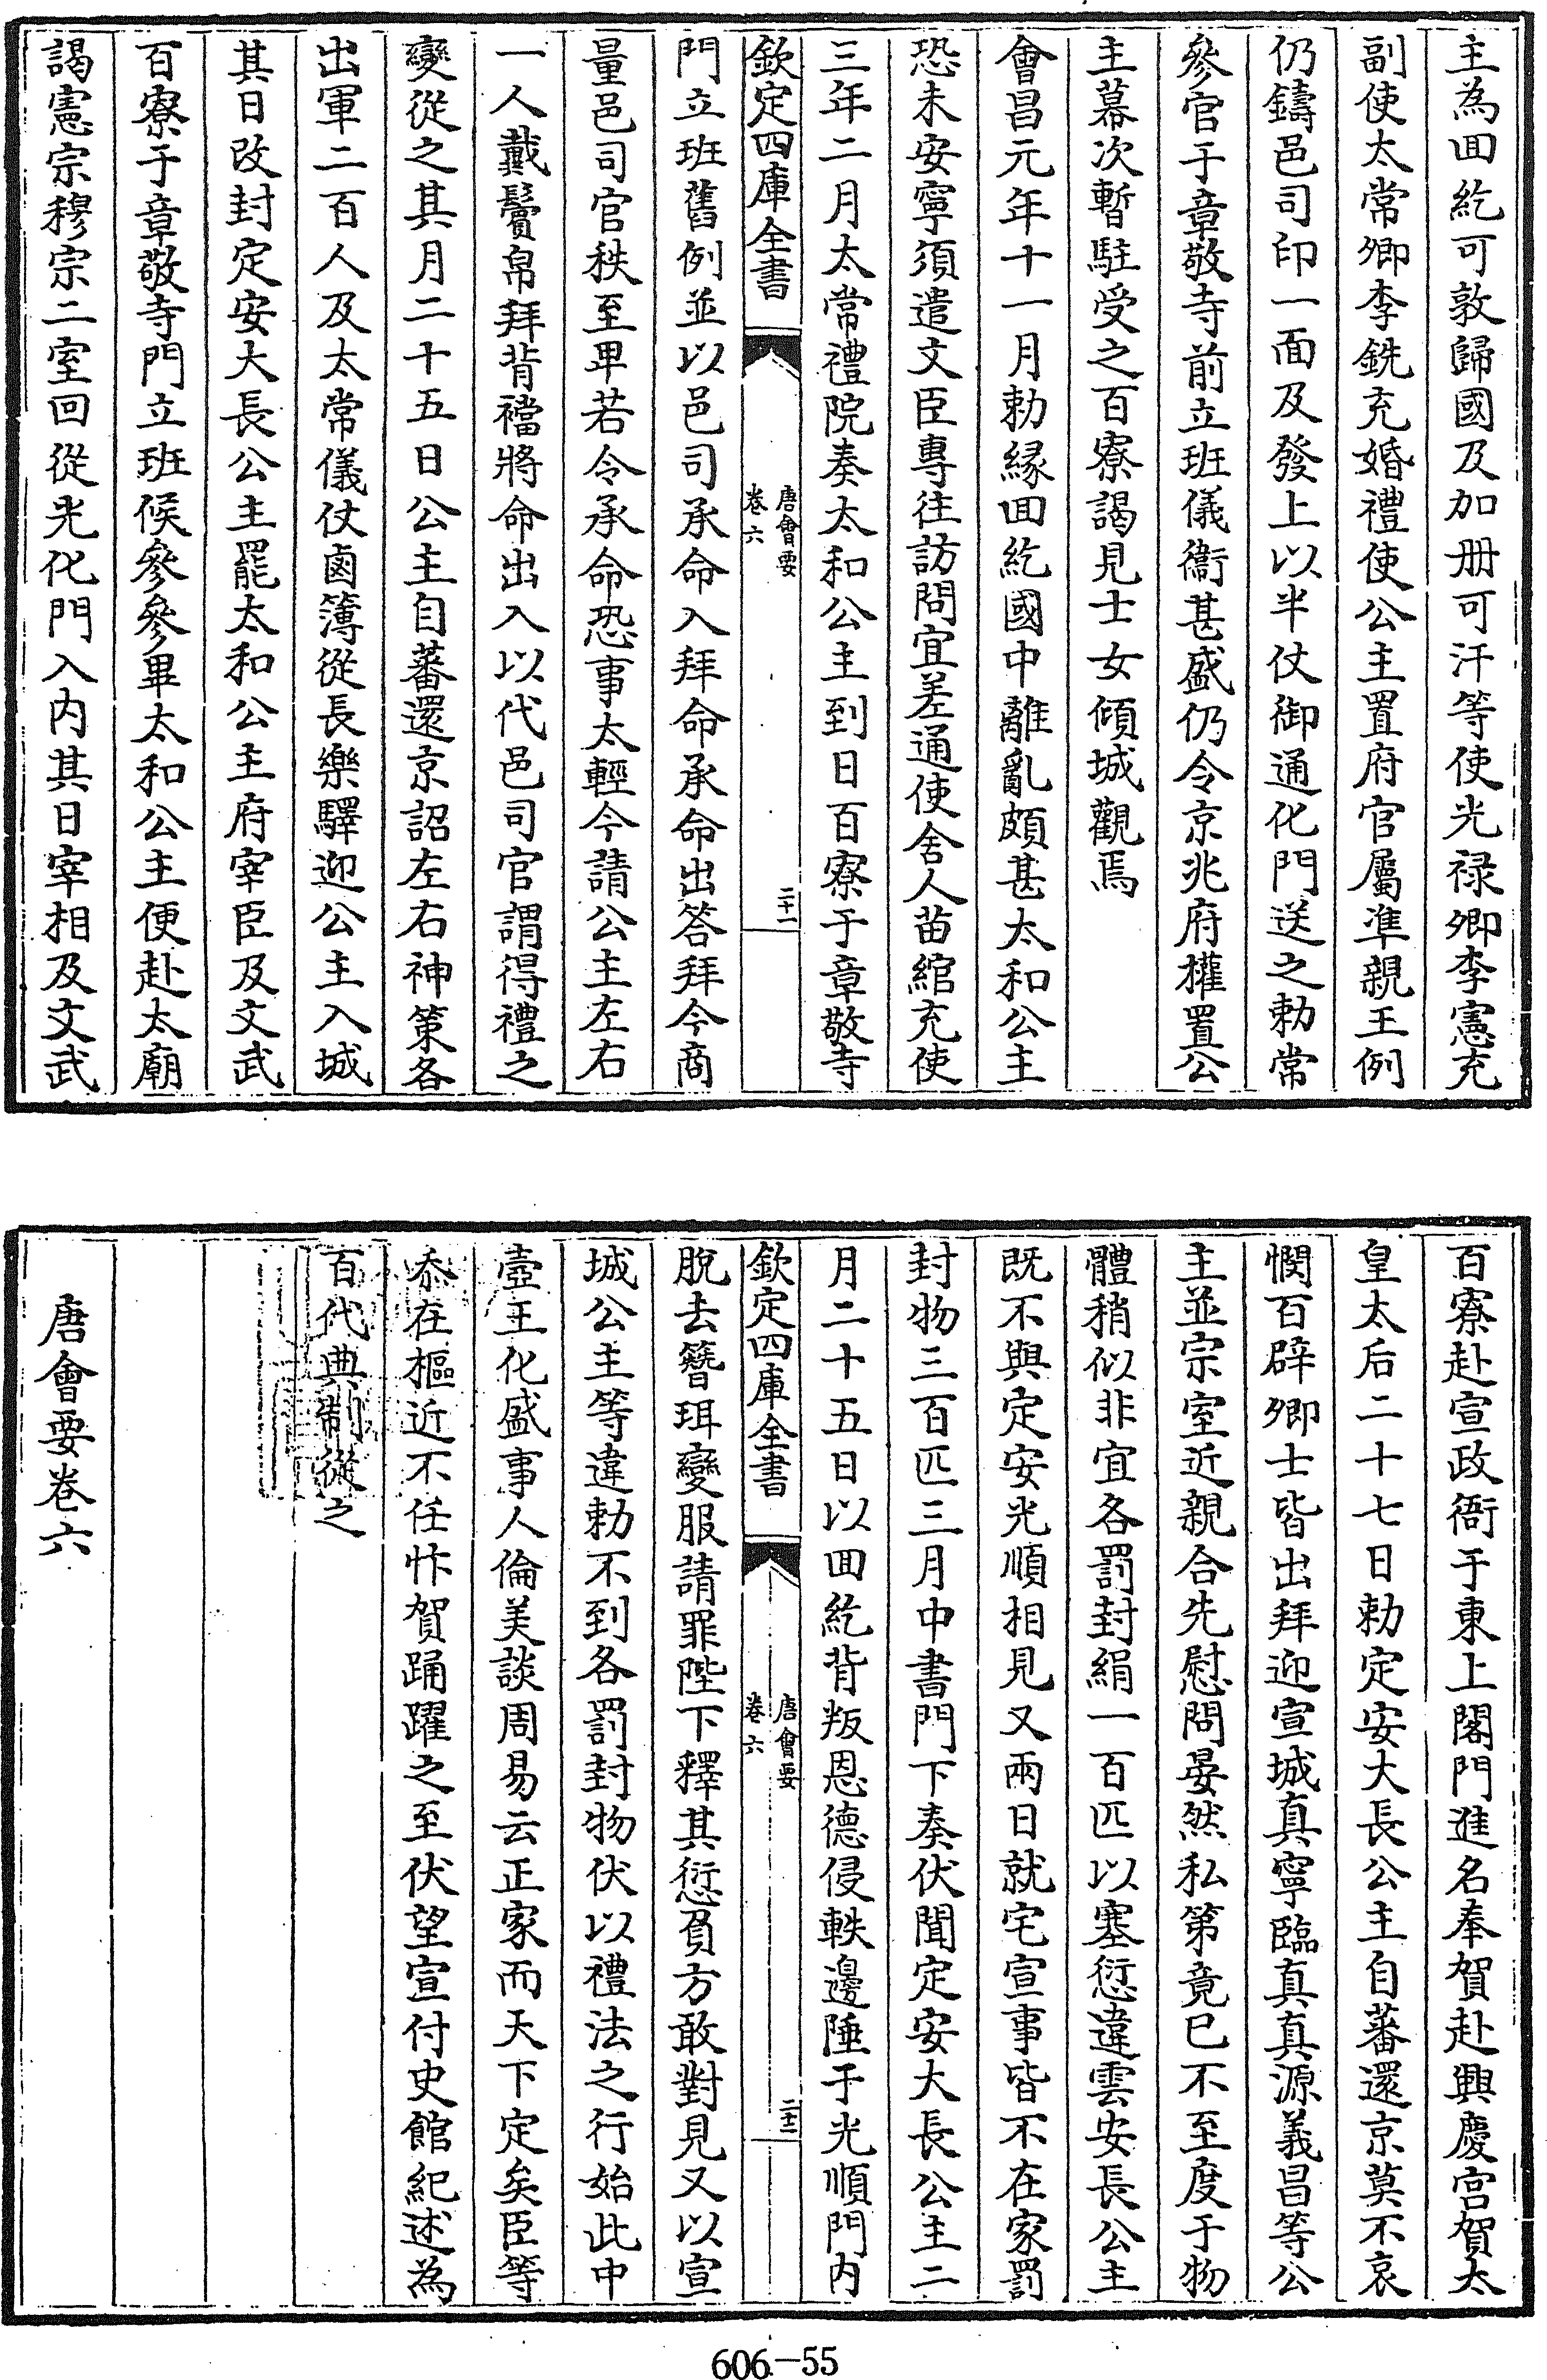 主為回紇可敦歸國及加册可汗等使光禄卿李憲充
副使太常卿李銑充婚禮使公主置府官屬凖親王例
仍鑄邑司印一面及發上以半仗御通化門送之勅常
參官于章敬寺前立班儀衞甚盛仍令京兆府權置公
主幕次暫駐受之百寮謁見士女傾城觀焉
會昌元年十一月勅縁回紇國中離亂頗甚太和公主
恐未安寧須遣文臣專往訪問宜差通使舍人苗綰充使
三年二月太常禮院奏太和公主到日百寮于章敬寺
欽定四庫全書
唐會要
卷六
二十一
門立班舊例並以邑司承命入拜命承命出答拜今商
量邑司官秩至卑若令承命恐事太輕今請公主左右
一人戴鬢帛拜背襠將命出入以代邑司官謂得禮之
變從之其月二十五日公主自蕃還京詔左右神策各
出軍二百人及太常儀仗鹵簿從長樂驛迎公主入城
其日改封定安大長公主罷太和公主府宰臣及文武
百寮于章敬寺門立班候參參畢太和公主便赴太廟
謁憲宗穆宗二室回從光化門入内其日宰相及文武
百寮赴宣政衙于東上閣門進名奉賀赴興慶宫賀太
皇太后二十七日勅定安大長公主自蕃還京莫不哀
憫百辟卿士皆出拜迎宣城真寧臨真真源義昌等公
主並宗室近親合先慰問晏然私第竟已不至度于物
體稍似非宜各罰封絹一百匹以塞愆違雲安長公主
既不與定安光順相見又兩日就宅宣事皆不在家罰
封物三百匹三月中書門下奏伏聞定安大長公主二
月二十五日以回紇背叛恩德侵軼邊陲于光順門内
欽定四庫全書
唐會要
卷六
二十二
脫去簪珥變服請罪陛下釋其愆負方敢對見又以宣
城公主等違勅不到各罰封物伏以禮法之行始此中
壼王化盛事人倫美談周易云正家而天下定矣臣等
忝在樞近不任忭賀踊躍之至伏望宣付史館紀述為
百代典制從之
唐會要卷六
606-55